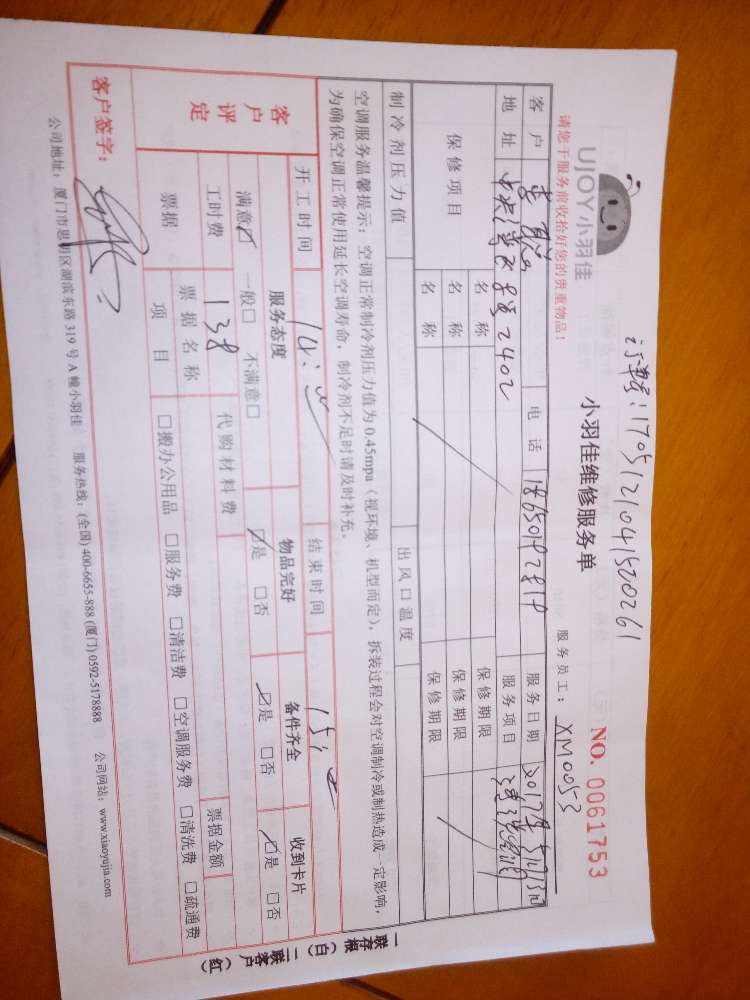 订单号:1705121041520261
UJOY小羽佳
小羽佳维修服务单
NO. 0061753
请您于服务前收拾好您的贵重物品!
服务员工: XM0053
客户 电话 18650182818 服务日期
地址 2402 服务项目
保修项目 名称 保修期限
名称 保修期限
名称 保修期限
制冷剂压力值 出风口温度
空调服务温馨提示:空调正常制冷剂压力值为0.45mpa(视环境、机型而定),拆装过程会对空调制冷或制热造成一定影响,
为确保空调正常使用延长空调寿命,制冷剂不足时请及时补充。
客户评定
开工时间 结束时间
服务态度 物品完好 备件齐全 收到卡片
满意☑ 一般□ 不满意□ ☑是 □否 ☑是 □否 ☑是 □否
工时费 138 代购材料费 票据金额
票据 票据名称
项目 □搬办公用品 □服务费 □清洁费 □空调服务费 □清洗费 □疏通费
客户签字:
公司地址:厦门市思明区湖滨东路319号A幢小羽佳 服务热线:(全国)400-6655-888(厦门)0592-5178888 公司网站:www.xiaoyujia.com
一联存根(白) 二联客户(红)